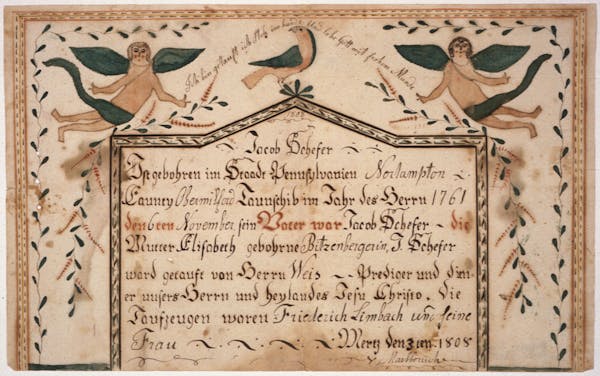 Ich bin getauft ich steh im bunde und lobe Gott mit frohem Munde
1808
Jacob Schefer
Ist gebohren im Staadt Pennsylvanien Northampton
Caunty Obermilfad Taunschib im Jahr des Herrn 1761
den 6ten November, sein Vater war Jacob Schefer die
Mutter Elisabeth gebohrne Bitzenbergerin, J. Schefer
ward getauft von Herrn Weis Prediger und dien-
er unsers Herrn und heylandes Jesu Christo. die
Taufzeugen waren Friederich Limbach und seine
Frau Mertz den 3 1808